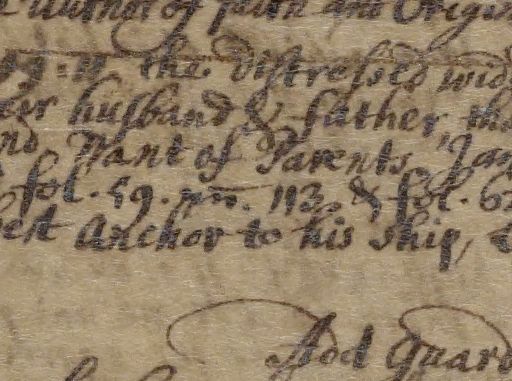 Author of path and Origin
11. the distressed wid
er husband & father, th
nd Want of Parents, Jam
fol. 59. nū. 113. & fol. 62
best Anchor to his ship,
God guard